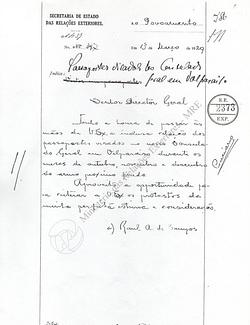 SECRETARIA DE ESTADO
DAS RELAÇÕES EXTERIORES.
Ao Povoamento
13 Março 1929
Indice:
Passaportes visados no Consulado
Geral em Valparaiso
Senhor Director Geral,
Tenho a honra de passar ás
mãos de V. Sa. a inclusa relação dos
passaportes visados no nosso Consula-
do Geral em Valparaiso durante os
mezes de outubro, novembro e dezembro
do anno proximo findo.
Aproveito a opportunidade pa-
ra reiterar a V. Sa. os protestos da
minha perfeita estima e consideração.
a) Raul A. de Campos
R.E.
2373
EXP.
MRE